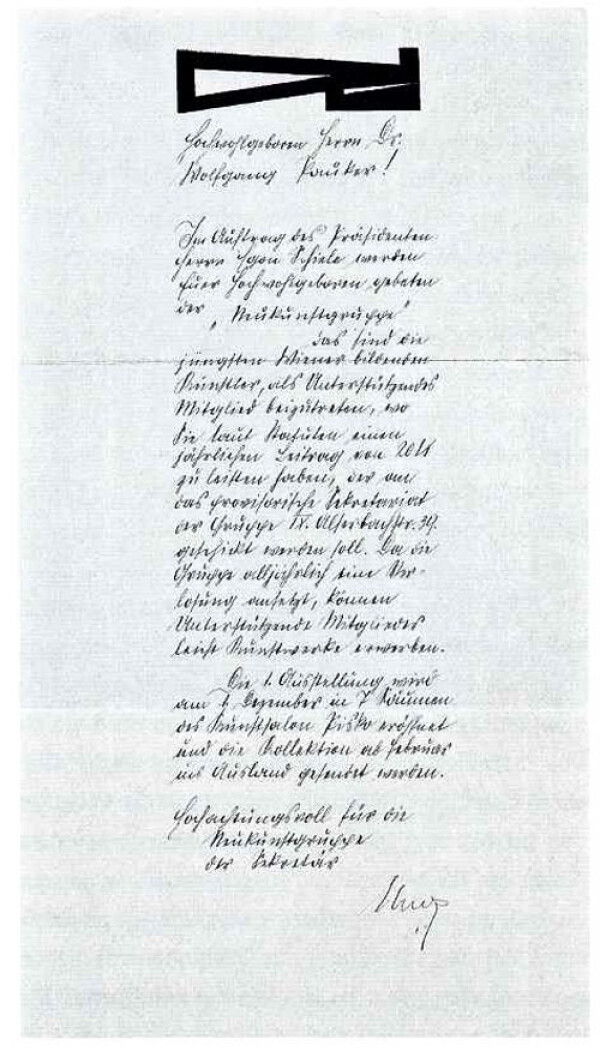 Hochwohlgeboren Herrn Dr.
Wolfgang Pauker!
Im Auftrag des Präsidenten
Herrn Egon Schiele werden
Euer Hochwohlgeboren gebeten
der „Neukunstgruppe"
das sind die
jüngsten Wiener bildenden
Künstler, als Unterstützendes
Mitglied beizutreten, wo
Sie laut Statuten einen
jährlichen Beitrag von
zu leisten haben, der an
das provisorische Sekretariat
der Gruppe IX. Alserbachstr. 39.
geschickt werden soll. Da die
Gruppe alljährlich eine Ver-
losung ansetzt, können
Unterstützende Mitglieder
leicht Kunstwerke erwerben.
Die 1. Ausstellung wird
am 1. Dezember in 7 Räumen
des Kunstsalon Pisko eröffnet
und die Kollektion ab Februar
ins Ausland gesendet werden.
Hochachtungsvoll für die
Neukunstgruppe
der Sekretär